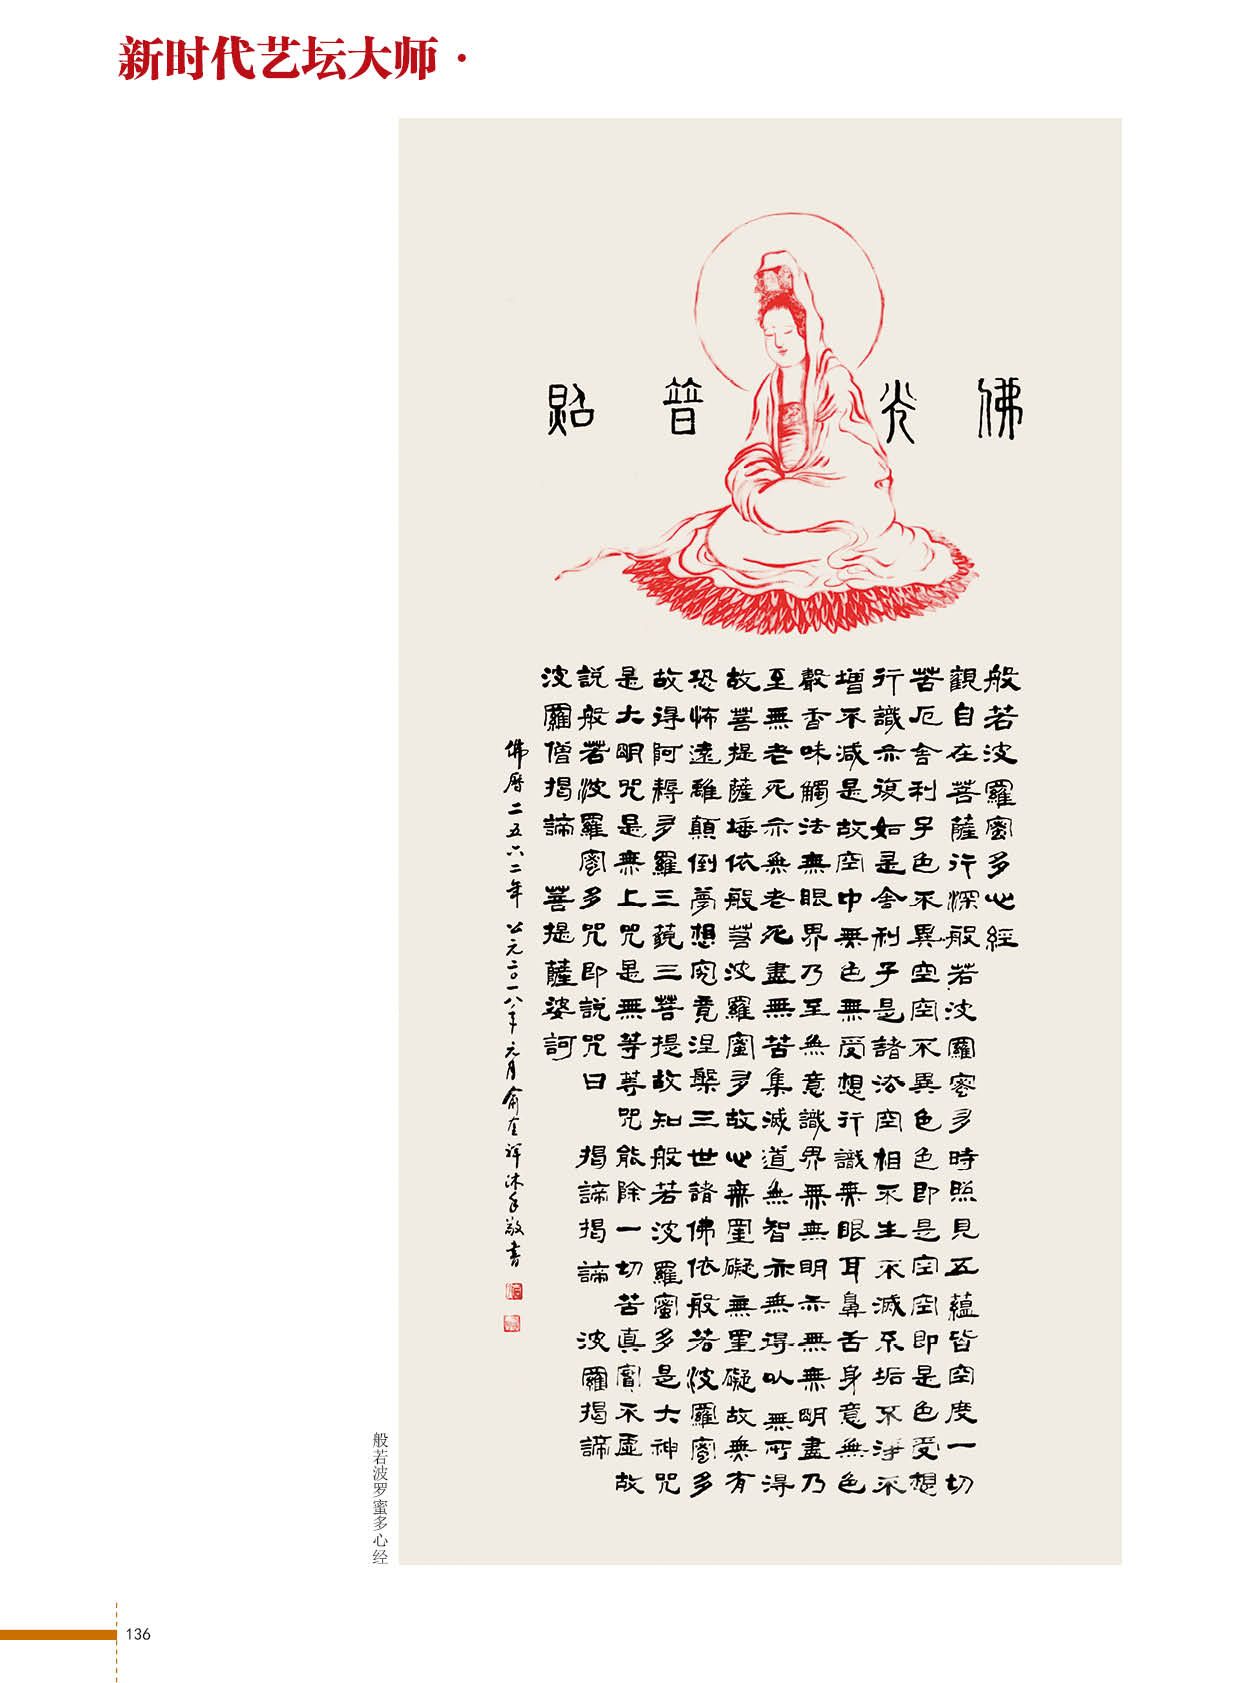 新时代艺坛大师·
佛光普照
般若波羅蜜多心經
觀自在菩薩行深般若波羅蜜多時照見五蘊皆空度一切
苦厄舍利子色不異空空不異色色即是空空即是色受想
行識亦復如是舍利子是諸法空相不生不滅不垢不淨不
增不減是故空中無色無受想行識無眼耳鼻舌身意無色
聲香味觸法無眼界乃至無意識界無無明亦無無明盡乃
至無老死亦無老死盡無苦集滅道無智亦無得以無所得
故菩提薩埵依般若波羅蜜多故心無罣礙無罣礙故無有
恐怖遠離顛倒夢想究竟涅槃三世諸佛依般若波羅蜜多
故得阿耨多羅三藐三菩提故知般若波羅蜜多是大神咒
是大明咒是無上咒是無等等咒能除一切苦真實不虛故
說般若波羅蜜多咒即說咒曰 揭諦揭諦 波羅揭諦
波羅僧揭諦 菩提薩婆訶
佛曆二五六二年 公元二〇一八年元月俞祥沐手敬書
般若波罗蜜多心经
136